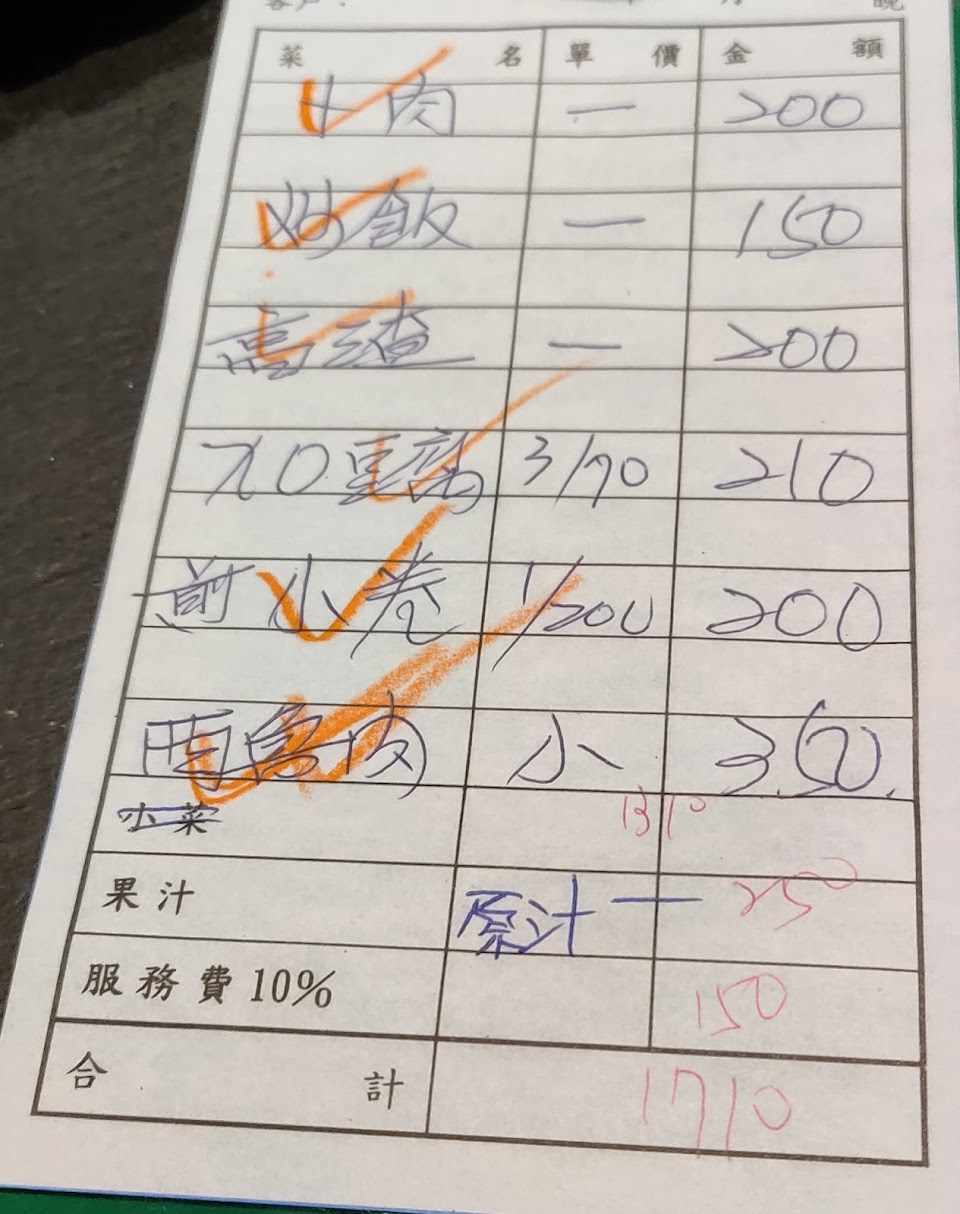 菜名 單價 金額
卜肉 一 200
炒飯 一 150
高渣 一 200
3/70 210
小卷 1/200 200
肉 小 350.
小菜
1310
果汁 原汁 一 250
服務費10% 150
合計 1710